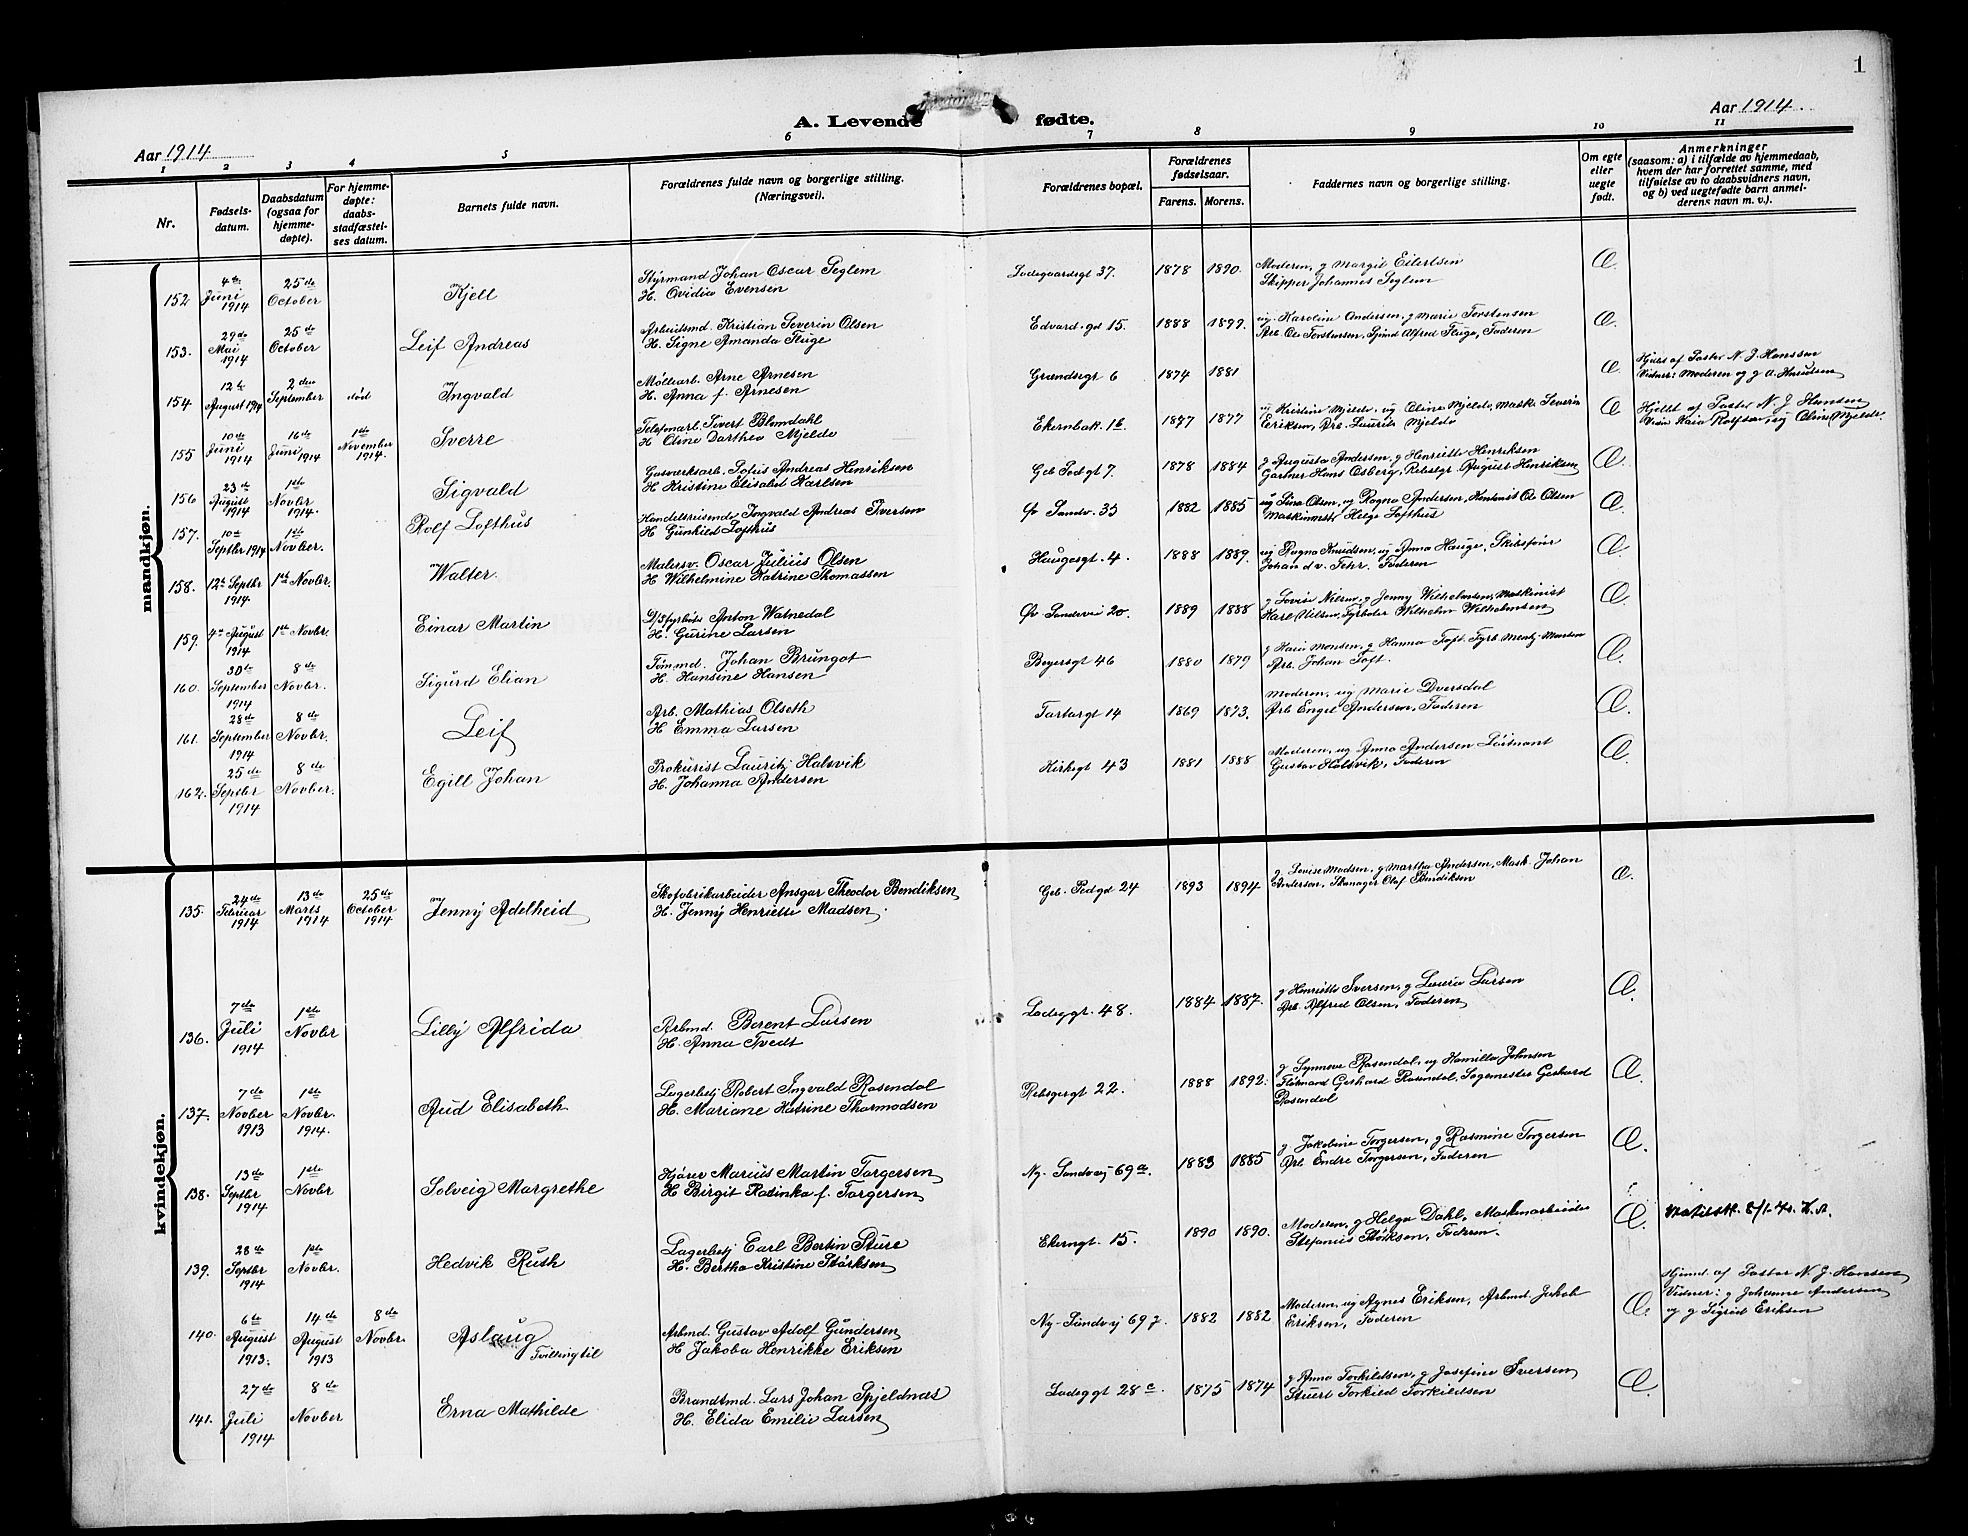 1
A. Levende fødte.
Aar 1914
Aar 1914.
1 2 3 4 5 6 7 8 9 10 11
Nr.
Fødsels-
datum.
Daabsdatum
(ogsaa for
hjemme-
døpte).
For hjemme-
døpte:
daabs-
stadfæstel-
ses datum.
Barnets fulde navn.
Forældrenes fulde navn og borgerlige stilling.
(Næringsvei).
Forældrenes bopæl.
Forældrenes
fødselsaar.
Farens. Morens.
Faddernes navn og borgerlige stilling.
Om egte
eller
uegte
født.
Anmerkninger
(saasom: a) i tilfælde av hjemmedaab,
hvem der har forrettet samme, med
tilføielse av to daabsvidners navn,
og b) ved uegtefødte barn anmel-
derens navn m. v.).
mandkjøn.
152 4de Juni 1914 25de October Kjell
Styrmand Johan Oscar Seglem
H. Ovidia Evensen
Ladegaardsgt 37. 1878 1890.
Moderen, g Margit Eilertsen
Skipper Johannes Seglem
Æ.
153. 29de Mai 1914 25de October Leif Andreas
Arbeidsmd. Kristian Severin Olsen
H. Signe Amanda Fluge
Edvard. gd 15. 1888
ug. Karoline Andersen, g Marie Torstensen
Arb. Ole Torstensen, Alfred Fluge, Faderen
Æ.
154. 12te August 1914 2den September død Ingvald
Møllearb. Arne Arnesen
H. Anna f. Arnesen
Grændsegt 6 1874 1881
Æ
Hjdbt af Pastor N. J. Hanssen
Vidner: Moderen og g A. Knudsen
155 10de Juni 1914 16de Juni 1914 1ste November 1914. Sverre
Telefonarb. Sivert Blomdahl
H Oline Dorthea Mjelde
1877
ug Kristine Mjelde, ug Oline Mjelde, Mask. Severin
Eriksen, Arb. Laurits Mjelde
Æ
Hjdbt af Pastor N. J. Hansen
Oline Mjelde.
156 23de August 1914 1ste Novbr 1914. Sigvald
Gasverksarb. Sofus Andreas Henriksen
H Kristine Elisabet Karlsen
1878 1884
g Augusta Andersen, g Henriette Henriksen
Gartner Hans Osberg, Rebslgr. August Henriksen
Æ.
157. 10de Septbr 1914 1ste Novbr. Rolf Lofthus
Handelsreisende Ingvald Andreas Iversen
H Gunhild Lofthus
Øv Sandv. 35 1882 1885
ug Lina Olsen, ug Ragna Andersen, Kontorist Ole Olsen
Maskinmst Helge Lofthus
Æ.
158. 12te Septbr 1914 1ste Novbr. Walter.
Malersv. Oscar Julius Olsen
H Wilhelmine Katrine Thomassen
Haugesgt. 4. 1888 1889.
ug Ragna Knudsen, ug Anna Hauge, Skibsfører
Johan d v. Fehr. Faderen
Æ
159. 4de August 1914 1ste Novbr. Einar Martin
D/S fyrbøt Anton Watnedal
H. Gurine Larsen
Øv Sandsvei 20. 1889 1888
g Lovise Nilsen, g Jenny Wilhelmsen, Maskinist
Karl Nilsen, Fyrbøter Wilhelm Wilhelmsen
Æ.
160. 30de September 1914 8de Novbr. Sigurd Elian
Tømmd. Johan Brungot
H. Hansine Hansen
Beyersgt 46 1880 1879
g Kari Monsen, g Hanna Toft. Fyrb Mentz Monsen
Arb. Johan Toft.
Æ.
161. 28de September 1914 8de Novbr. Leif
Arb. Mathias Olseth
H Emma Larsen
Tartargt 14 1869 1873.
Moderen, ug Marie Dversdal
Arb Engel Andersen, Faderen
Æ.
162. 25de Septbr 1914 8de Novber. Egill Johan
Prokurist Lauritz Halsvik
H. Johanna Andersen
Kirkegt 43 1881 1888
Moderen, ug Anna Andersen Løitnant
Gustav Halsvik, Faderen
Æ.
kvindekjøn.
135. 24de Februar 1914 13de Marts 1914 25de October 1914 Jenny Adelheid
Skofabrikarbeider Ansgar Theodor Bendiksen
H. Jenny Henriette Madsen.
1893 1894
g. Lovise Madsen, g Martha Andersen, Mask. Johan
Andersen, Olaf Bendiksen
Æ.
136. 7de Juli 1914 1ste Novbr Lilly Alfrida
Arbmd. Berent Larsen
H. Anna Tvedt
Ladeggt. 48. 1884 1887.
g Henriette Iversen, g Larsen
Arb. Alfred Olsen, Faderen
Æ.
137. 7de Novber 1913 1ste Novbr. 1914. Aud Elisabeth
Lagerbetj Robert Ingvald Rosendal
H. Mariane Katrine Thormodsen
Rebsgergt 22. 1888 1892.
g Synneve Rosendal, ug Kamilla Johnsen
Gerhard Rosendal, Gerhard
Rosendal
Æ.
138. 13de Septbr 1914 1ste Novbr Solveig Margrethe
Kjører Marius Martin Torgersen
H Birgit Rasinka f. Torgersen
Ny-Sandvj 69a. 1883 1885
g. Jakobine Torgersen, g Rasmine Torgersen
Arb Endre Torgersen, Faderen
Æ.
139. 28de Septbr 1914 1ste Novbr. Hedvik Ruth
Lagerbetj Carl Bertin Sture
H. Bertha Kristine Størksen
Ekerngt. 15. 1890 1890.
Moderen, g Helga Dahl, Maskinarbeider
Stefanus Størksen, Faderen.
Æ.
8/1-40.
140. 6te August 1913. 14de August 1913 8de Novbr. Aslaug
Tvillingtil
Arbmd. Gustav Adolf Gundersen
H Jakoba Henrikke Eriksen
Ny-Sandvj 69 1882 1882
Moderen, ug Agnes Eriksen, Arbmd. Jakob
Eriksen, Faderen
Æ.
Hjmd. af Pastor N. J. Hansen
Vidner: g Johanne Andersen
og g Sigrid Eriksen
141. 27de Juli 1914 8de Novber Erna Mathilde
Brandtmd. Lars Johan Spjeldnæs
H. Elida Emilie Larsen
Ladeggt 28c. 1875 1874
g Anna Torkildsen, g Josefine Iversen
Stuert Torkild Torkildsen
Æ.